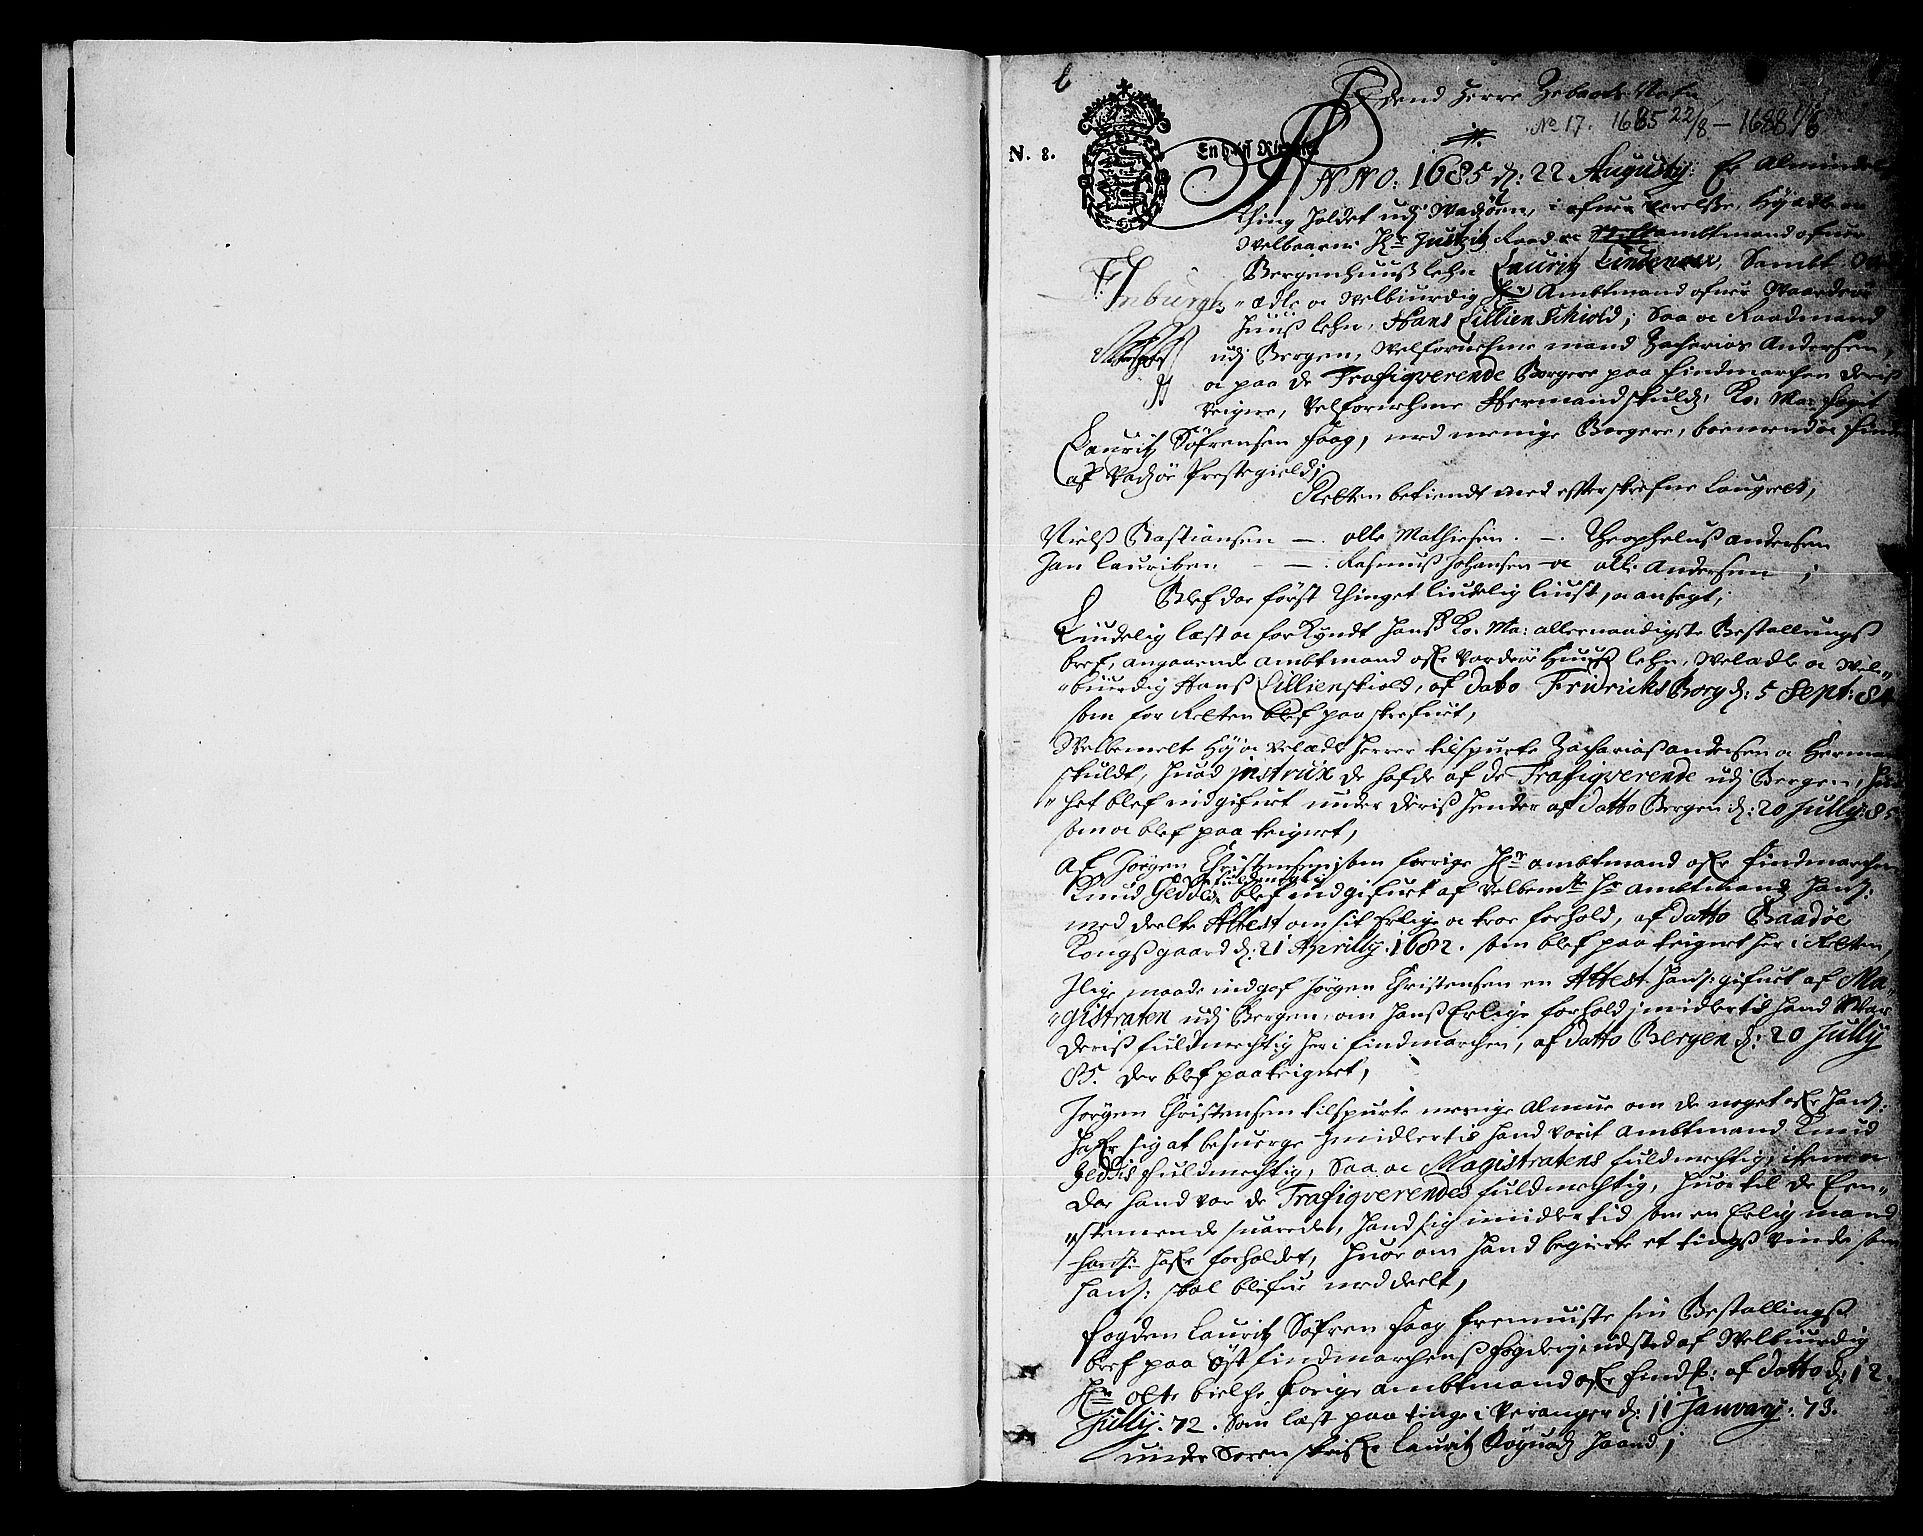 N. 8.
En halff Rigsdaler
Send Herre Zebaoths Nafn
No 17. 1685 22/8 - 1688 1/6
ANNO: 1685 d: 22 Augustij: Er Almindel:
Ting holdet udj Wadzöen, i ofuerværelse, Höyædle oc
Welbaarne Hr Justitz Raad oc Stifftambtmand ofuer
Bergenhuuss lehn Lauritz Lindenow, Sambt
ædle oc Welbiurdig Hr Ambtmand ofuer Waardöe
huuss lehn, Hans Lillienschiold; saa oc Raadmand
udj Bergen, Welfornehme mand Zacharias Andersen,
oc paa de Trafiqverende Borgere paa Findmarchen deris
veigne, Velfornehme Herman Schuldt, Ko: Ma: foget
Lauritz Söfrensen Haag, med menige Borgere, boemend oc Finner
af Vadzöe Prestegield;
Retten betiendt med effterskrefne Laugret;
Nielss Bastiansen —. Olle Mathiesen. —. Theophelus Andersen
Jan Lauritzen — —. Rasmuss Johansen oc Olle Andersen;
Blef da först Thinget liudelig liust, oc ansagt;
Liudelig læst oc forkyndt hanss Ko: Ma: allernaadigste Bestallings
bref, angaaende ambtmand ofr Vardöe Huuss lehn, Welædle oc Wel-
biurdig Hanss Lillienskiold, af Dato Fridrichs Borg d: 5 Sept: 84
som for Retten blef paaskrefuet,
Welbemelte Höy oc velædle Herrer tilspurte Zachariass Andersen oc Herman
Skuldt, huad jnstrux de hafde af de Trafiqverende udj Bergen, huil-
chet blef indgifuet under deriss hender af Datto Bergen d: 20 Jullij: 85
som oc blef paateignet,
Af Jörgen Christensen som forrige Hr ambtmand ofr Findmarchen
Knud Geddis fuldmegtig blef indgifuet af velbemte Hr Ambtmand hans:
meddeelte Attest om sit Erlige oc troe forhold, af Datto Baadöe
Kongssgaard d: 21 Aprillij. 1682. som blef paateignet her i Retten,
Jlige maade indgaf Jörgen Christensen en Attest hans: gifuet af Ma-
gistraten udj Bergen, om hanss Erlige forhold jmidlertid hand Var
deriss fuldmechtig her i Findmarchen, af Datto Bergen d: 20 Jullij
85. der blef paateignet,
Jörgen Christensen tilspurte menige Almue om de noget ofr hans:
hafr sig at besuerge Jmidlertid hand vaar Ambtmand Knud
Geddis fuldmechtig, saa oc Magistratens fuldmechtig,
da hand var de Trafiqverendes fuldmechtig, huortil de Een-
stemmende suarede, hand sig imidlertid som en Erlig mand
hafr forholdet, huor om hand begierte et tingss vinde som
hans: skal blifue meddeelt,
Fogden Lauritz Söfren Haag fremuiste sin Bestallingss
bref paa Öst Findmarchenss fogderj, udsted af Welbiurdig
Hr Otte Bielche forige Ambtmand ofr Findm: af Datto d: 12.
Jullij. 72. Som læst paa tinge i Veranger d: 11 Janvarij. 73.
under Sorenskrifr Lauritz haand;